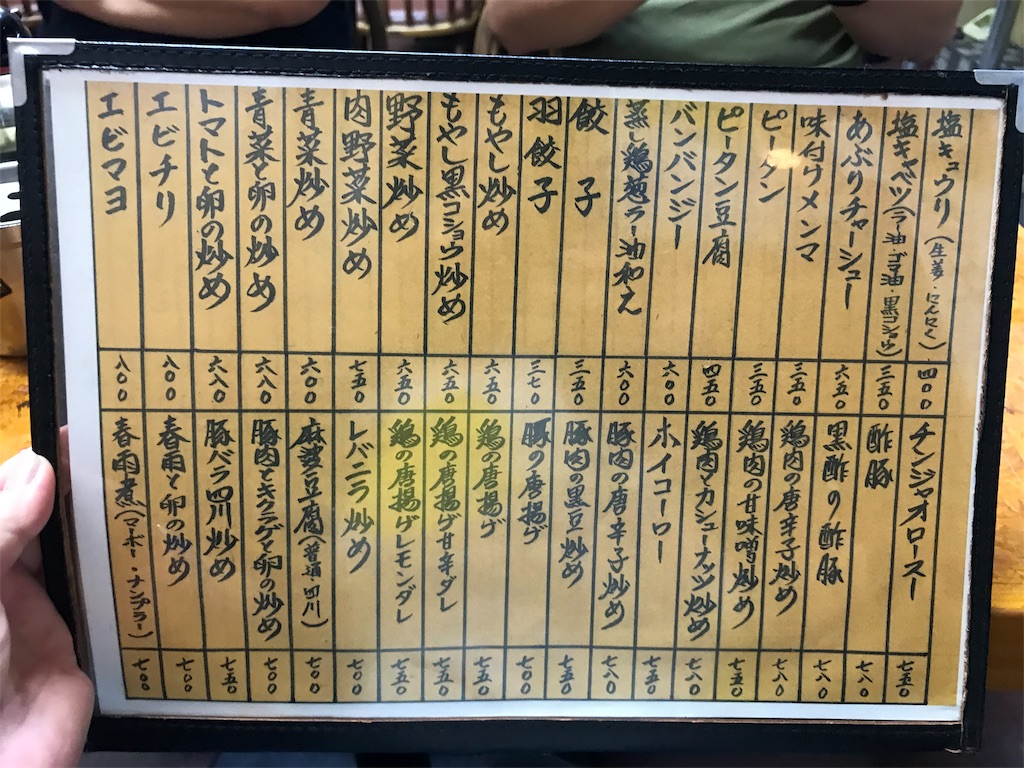 塩キュウリ(生姜・にんにく) 四〇〇
塩キャベツ(ラー油・ゴマ油・黒コショウ) 三五〇
あぶりチャーシュー 六五〇
味付けメンマ 三五〇
ピータン 三五〇
ピータン豆腐 四五〇
バンバンジー 六〇〇
蒸し鶏葱ラー油和え 六〇〇
餃子 三五〇
羽餃子 三七〇
もやし炒め 六五〇
もやし黒コショウ炒め 六五〇
野菜炒め 六五〇
肉野菜炒め 七五〇
青菜炒め 六〇〇
青菜と卵の炒め 六八〇
トマトと卵の炒め 六八〇
エビチリ 八〇〇
エビマヨ 八〇〇
チンジャオロースー 七五〇
酢豚 七八〇
黒酢の酢豚 七八〇
鶏肉の唐辛子炒め 七八〇
鶏肉の甘味噌炒め 七五〇
鶏肉とカシューナッツ炒め 七八〇
ホイコーロー 七五〇
豚肉の唐辛子炒め 七八〇
豚肉の黒豆炒め 七五〇
豚の唐揚げ 七〇〇
鶏の唐揚げ 七五〇
鶏の唐揚げ甘辛ダレ 七五〇
鶏の唐揚げレモンダレ 七五〇
レバニラ炒め 七〇〇
麻婆豆腐(普通・四川) 七〇〇
豚肉とキクラゲと卵の炒め 七〇〇
豚バラ四川炒め 七五〇
春雨と卵の炒め 七〇〇
春雨煮(マーボー・ナンプラー) 七〇〇